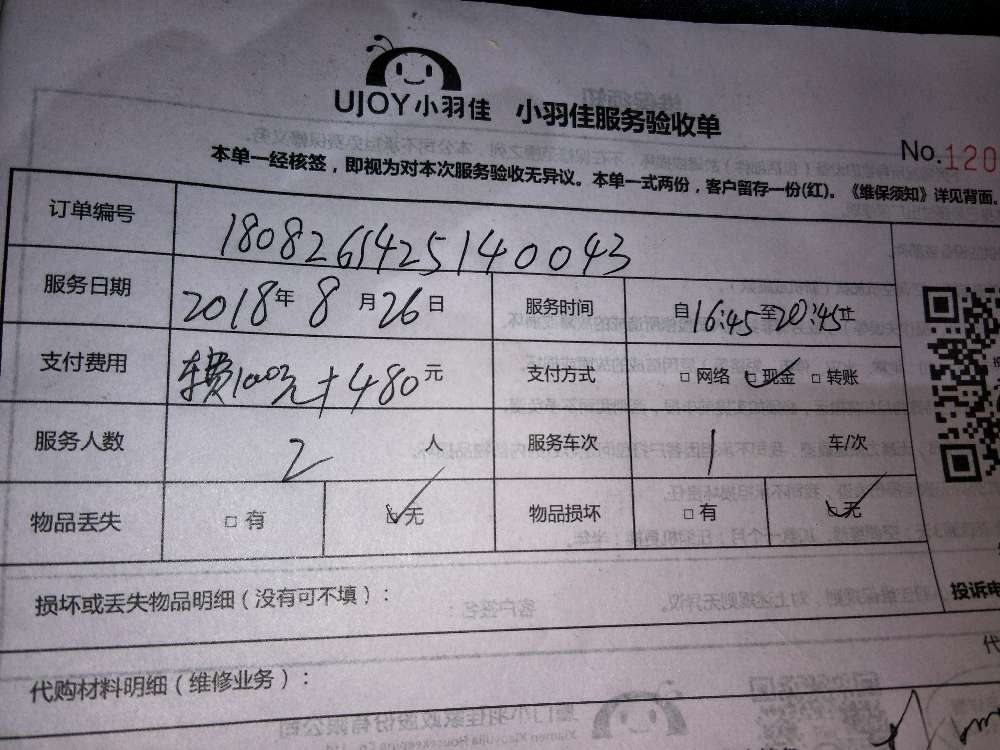 UJOY小羽佳 小羽佳服务验收单
No.120
本单一经核签，即视为对本次服务验收无异议。本单一式两份，客户留存一份(红)。《维保须知》详见背面。
订单编号 180826142514 0043
服务日期 2018年 8 月 26 日 服务时间 自16:45至20:45止
支付费用 车费100元+480元 支付方式 □网络 ☑现金 □转账
服务人数 2 人 服务车次 1 车/次
物品丢失 □有 ☑无 物品损坏 □有 ☑无
损坏或丢失物品明细（没有可不填）：
投诉电
代购材料明细（维修业务）：
代